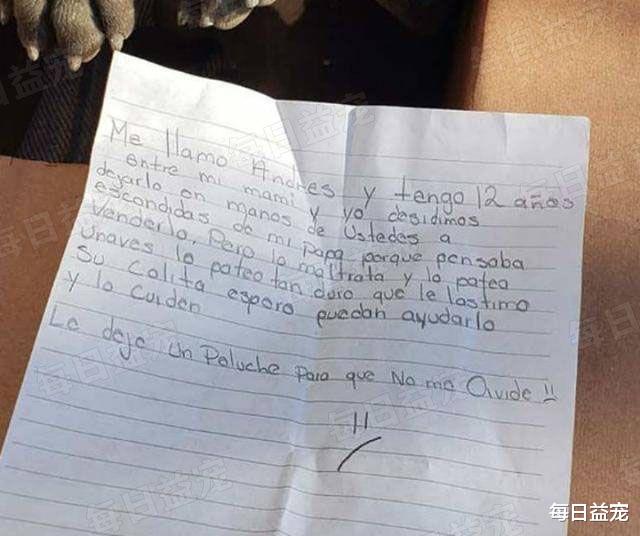 Me llamo Andres y tengo 12 años
entre mi mami y yo desidimos
dejarlo en manos de Ustedes a
escondidas de mi papa porque pensaba
Venderlo. Pero lo maltrata y lo patea
Unaves lo pateo tan duro que le lastimo
Su Colita espero puedan ayudarlo
y lo Cuiden
Le deje Un Peluche Para que No me Olvide !!
每日益宠
每日益宠
每日益宠
每日益宠
每日益宠
每日益宠
每日益宠